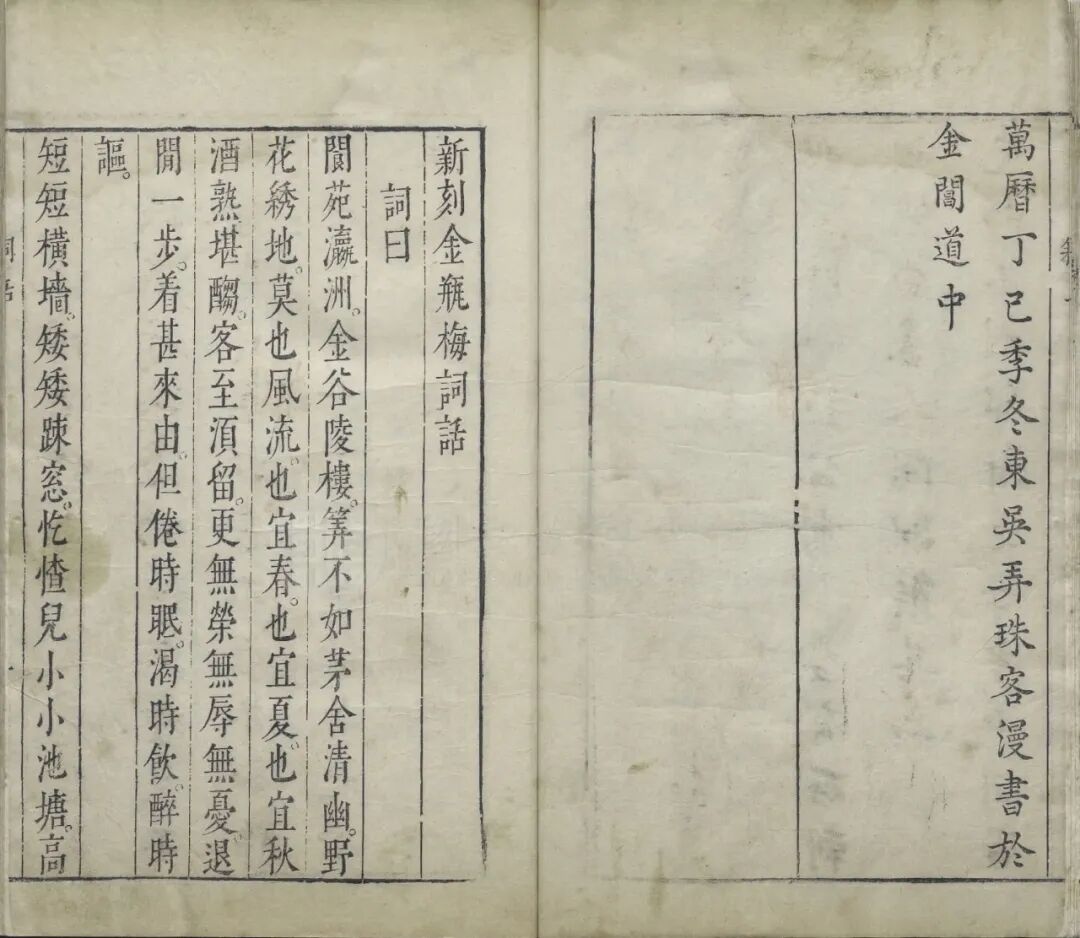 萬曆丁巳季冬東吳弄珠客漫書於
金閶道中
新刻金瓶梅詞話
詞曰
閬苑瀛洲。金谷陵樓。筭不如茅舍清幽。野
花綉地。莫也風流。也宜春。也宜夏。也宜秋
酒熟堪酌。客至湏留。更無榮無辱無憂。退
閒一步。着甚來由。但倦時眠。渴時飲。醉時
謳。
短短橫墻。矮矮踈窓。忔㦃兒小小池塘。高